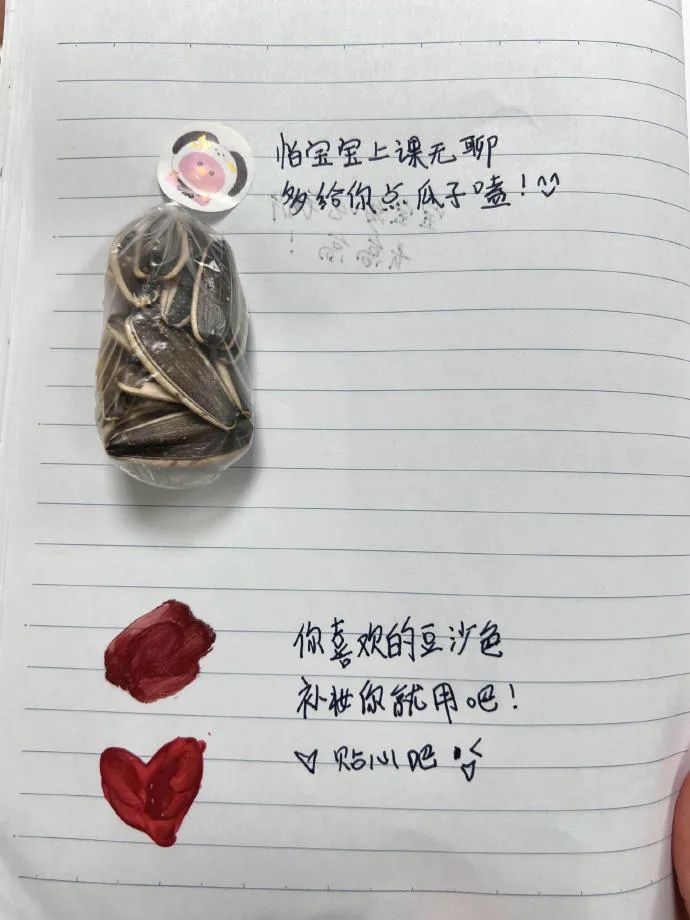 怕宝宝上课无聊
多给你点瓜子嗑!
你喜欢的豆沙色
补妆你就用吧!
贴心吧